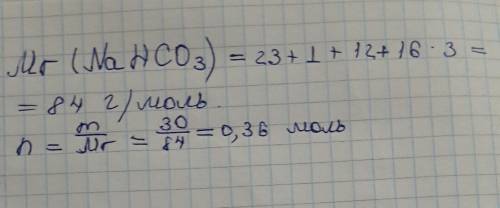 Mr (NaHCO₃) = 23 + 1 + 12 + 16 · 3 =
= 84 г/моль.
n = m/Mr = 30/84 = 0,36 моль